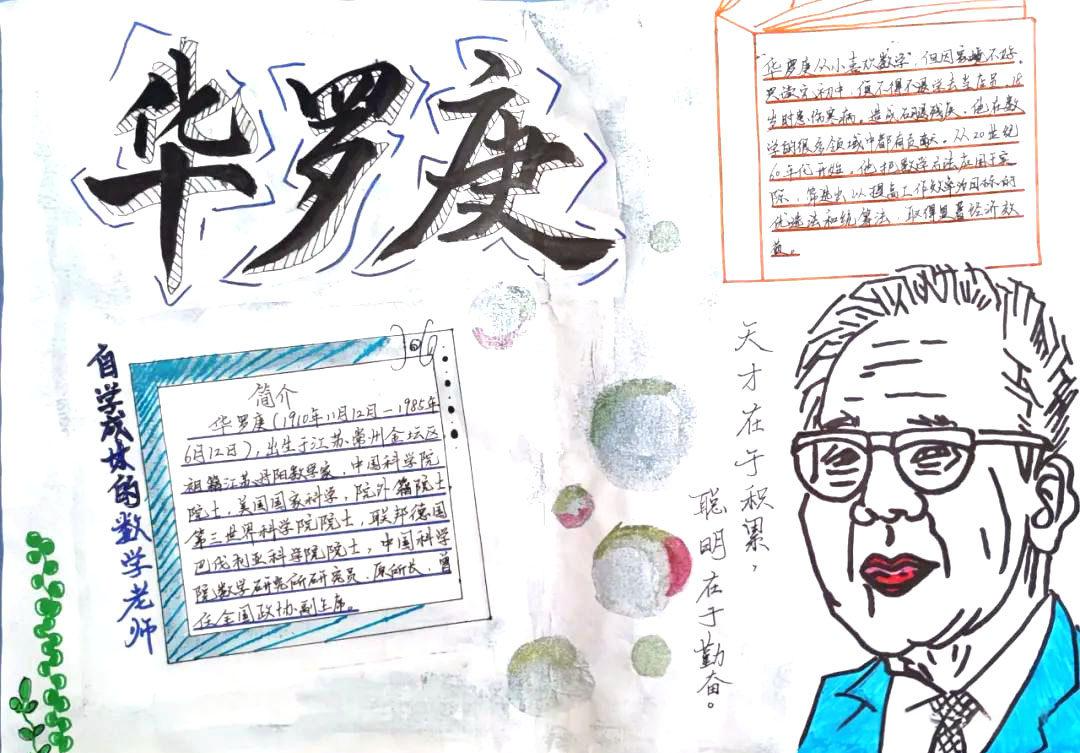 华罗庚
"华罗庚从小喜欢数学"但因家境不好,
只读完初中,便不得不退学去当店员,18
岁时患伤寒病,造成右腿残疾,他在数
学的很多领域中都有贡献。从20世纪
60年代开始,他把数学方法应用于实
际,筛选出以提高工作效率为目标的
优选法和统筹法,取得显著经济效
益。
自学成才的数学老师
简介
华罗庚(1910年11月12日—1985年
6月12日),出生于江苏常州金坛区,
祖籍江苏丹阳数学家,中国科学院
院士,美国国家科学,院外籍院士,
第三世界科学院院士,联邦德国
巴伐利亚科学院院士,中国科学
院数学研究所研究员、原所长,曾
任全国政协副主席。
天才在于积累,
聪明在于勤奋。